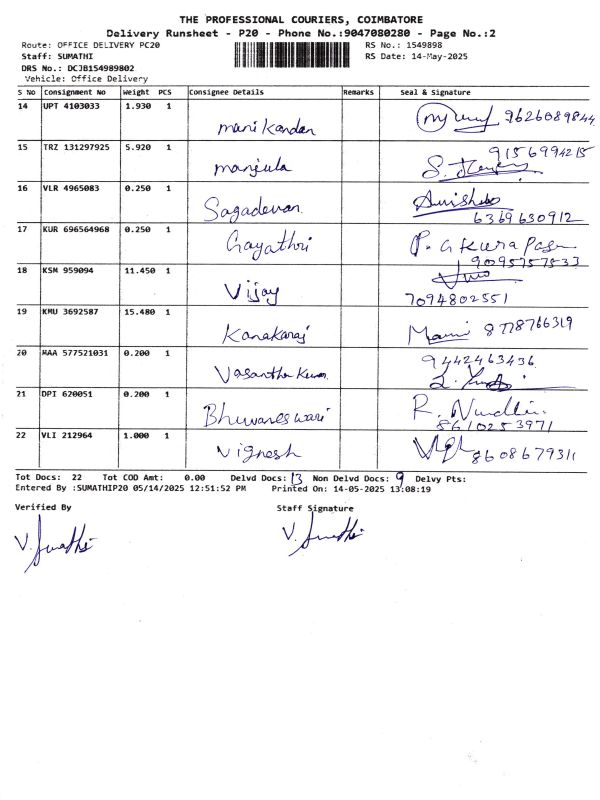 THE PROFESSIONAL COURIERS, COIMBATORE
Delivery Runsheet - P20 - Phone No.:9047080280 - Page No.:2
Route: OFFICE DELIVERY PC20 RS No.: 1549898
Staff: SUMATHI RS Date: 14-May-2025
DRS No.: DCJB154989802
Vehicle: Office Delivery
S No Consignment No Weight PCS Consignee Details Remarks Seal & Signature
14 UPT 4103033 1.930 1 manikandan 9626089844
15 TRZ 131297925 5.920 1 manjula 9156994215
16 VLR 4965083 0.250 1 Sagadevan 6369630912
17 KUR 696564968 0.250 1 Gayathri 9095757533
18 KSN 959094 11.450 1 Vijay 7094802551
19 KMU 3692587 15.480 1 Kanakaraj Mani 8778766319
20 MAA 577521031 0.200 1 Vasantha Kumar 9442463436
21 DPI 620051 0.200 1 Bhuvaneswari 8610253971
22 VLI 212964 1.000 1 Vignesh 8608679311
Tot Docs: 22 Tot COD Amt: 0.00 Delvd Docs: 13 Non Delvd Docs: 9 Delvy Pts:
Entered By :SUMATHIP20 05/14/2025 12:51:52 PM Printed On: 14-05-2025 13:08:19
Verified By Staff Signature
V. Sumathi V. Sumathi